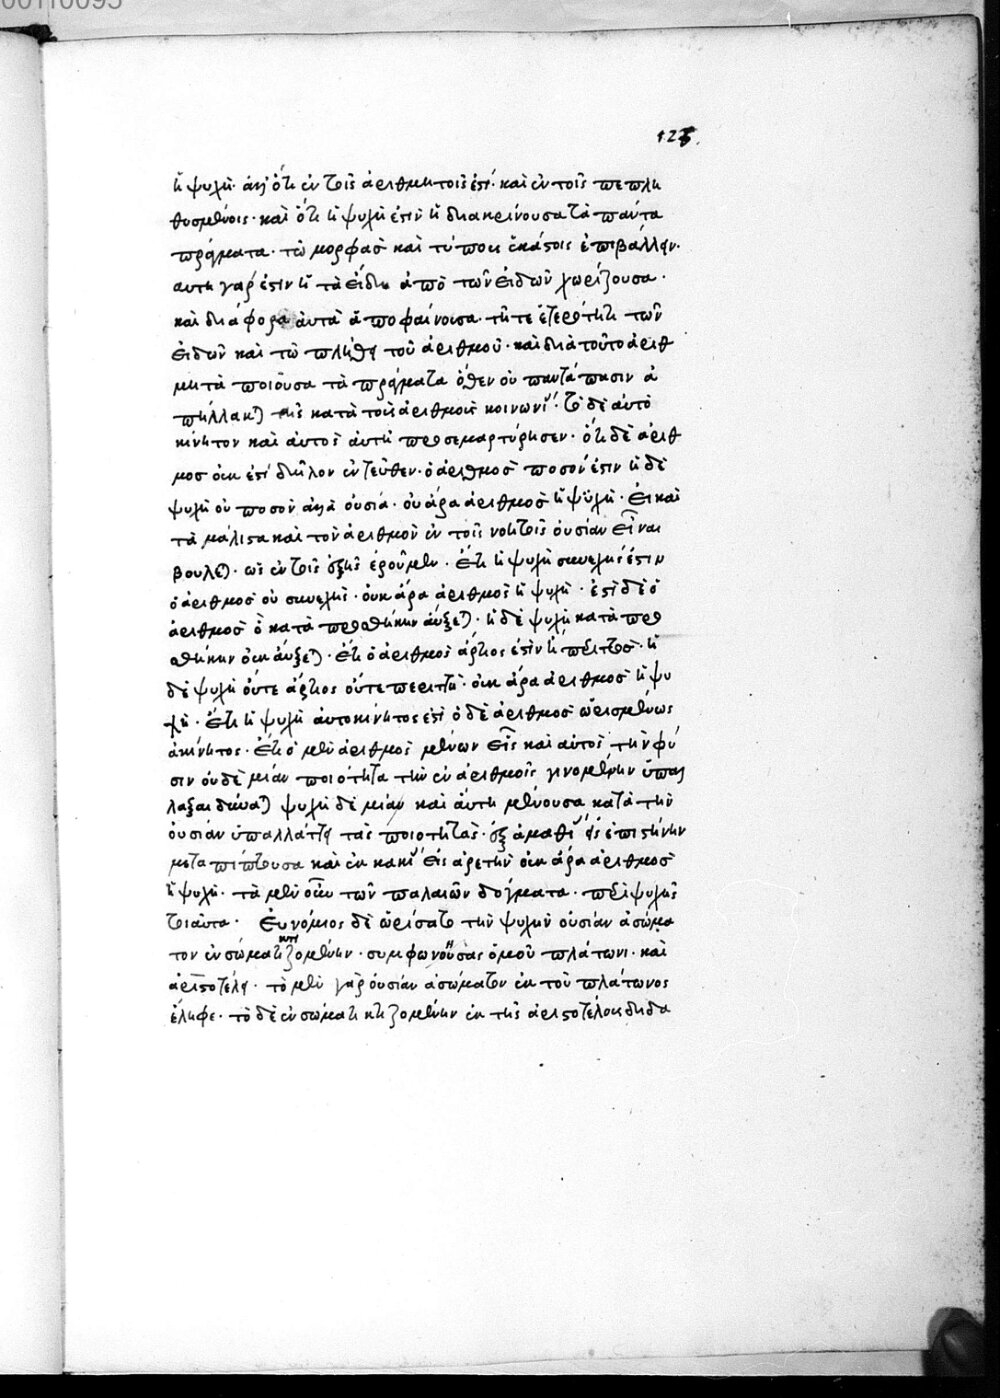 00110095
125
ἡ ψυχή· ἀλλ' ὅτι ἐν τοῖς ἀριθμητοῖς ἐστί· καὶ ἐν τοῖς πεπλη
θυσμένοις· καὶ ὅτι ἡ ψυχή ἐστιν ἡ διακρίνουσα τὰ πάντα
πράγματα· τῷ μορφὰς καὶ τύπους ἑκάστοις ἐπιβάλλειν·
αὕτη γάρ ἐστιν ἡ τὰ εἴδη ἀπὸ τῶν εἰδῶν χωρίζουσα·
καὶ διάφορα αὐτὰ ἀποφαίνουσα· τῇ τε ἑτερότητι τῶν
εἰδῶν καὶ τῷ πλήθει τοῦ ἀριθμοῦ· καὶ διὰ τοῦτο ἀριθ
μητὰ ποιοῦσα τὰ πράγματα ὅθεν οὐ παντάπασιν ἀ
πήλλακται τῆς κατὰ τοὺς ἀριθμοὺς κοινωνίας· τὸ δὲ αὐτὸ
κίνητον καὶ αὐτὸς αὐτῇ προσεμαρτύρησεν· ὅτι δὲ ἀριθ
μὸς οὐκ ἐστί δῆλον ἐντεῦθεν· ὁ ἀριθμὸς ποσόν ἐστιν ἡ δὲ
ψυχὴ οὐ ποσὸν ἀλλὰ οὐσία· οὐκ ἄρα ἀριθμὸς ἡ ψυχή· εἰ καὶ
τὰ μάλιστα καὶ τὸν ἀριθμὸν ἐν τοῖς νοητοῖς οὐσίαν εἶναι
βούλεται· ὡς ἐν τοῖς ἑξῆς ἐροῦμεν· ἔτι ἡ ψυχὴ συνεχής ἐστιν
ὁ ἀριθμὸς οὐ συνεχής· οὐκ ἄρα ἀριθμὸς ἡ ψυχή· ἔτι δὲ ὁ
ἀριθμὸς ὁ κατὰ προσθήκην αὔξεται· ἡ δὲ ψυχὴ κατὰ προσ
θήκην οὐκ αὔξεται· ἔτι ὁ ἀριθμὸς ἄρτιος ἐστὶν ἢ περιττός· ἡ
δὲ ψυχὴ οὔτε ἄρτιος οὔτε περιττή· οὐκ ἄρα ἀριθμὸς ἡ ψυ
χή· ἔτι ἡ ψυχὴ αὐτοκίνητος ἐστὶ ὁ δὲ ἀριθμὸς ὡρισμένως
ἀκίνητος· ἔτι ὁ μὲν ἀριθμὸς μένων εἷς καὶ αὐτὸς τὴν φύ
σιν οὐδὲ μίαν ποιότητα τὴν ἐν ἀριθμοῖς γινομένην ὑπαλ
λάξαι δύναται ψυχὴ δὲ μία καὶ αὐτὴ μένουσα κατὰ τὴν
οὐσίαν ὑπαλλάττει τὰς ποιότητας· ἐξ ἀμαθίας εἰς ἐπιστήμην
μεταπίπτουσα καὶ ἐκ κακίας εἰς ἀρετὴν οὐκ ἄρα ἀριθμὸς
ἡ ψυχή· τὰ μὲν οὖν τῶν παλαιῶν δόγματα· περὶ ψυχῆς
τοιαῦτα· Εὐνόμιος δὲ ὡρίσατο τὴν ψυχὴν οὐσίαν ἀσώμα
τον ἐν σώματι κτιζομένην· συμφωνούσας ὁμοῦ πλάτωνι· καὶ
ἀριστοτέλει· τὸ μὲν γὰρ οὐσίαν ἀσώματον ἐκ τοῦ πλάτωνος
ἔληφε· τὸ δὲ ἐν σώματι κτιζομένην ἐκ τῆς ἀριστοτέλους διδα